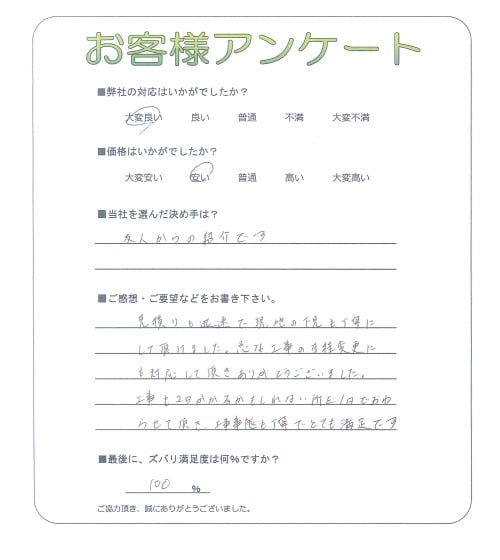 お客様アンケート
■弊社の対応はいかがでしたか？
大変良い 良い 普通 不満 大変不満
■価格はいかがでしたか？
大変安い 安い 普通 高い 大変高い
■当社を選んだ決め手は？
友人からの紹介です
■ご感想・ご要望などをお書き下さい。
見積りも迅速で現地の下見も丁寧に
して頂けました。急な工事の日程変更に
も対応して頂きありがとうございました。
工事も2日かかるかもしれない所を1日でおわ
らせて頂き、工事も丁寧でとても満足です
■最後に、ズバリ満足度は何%ですか？
100 %
ご協力頂き、誠にありがとうございました。